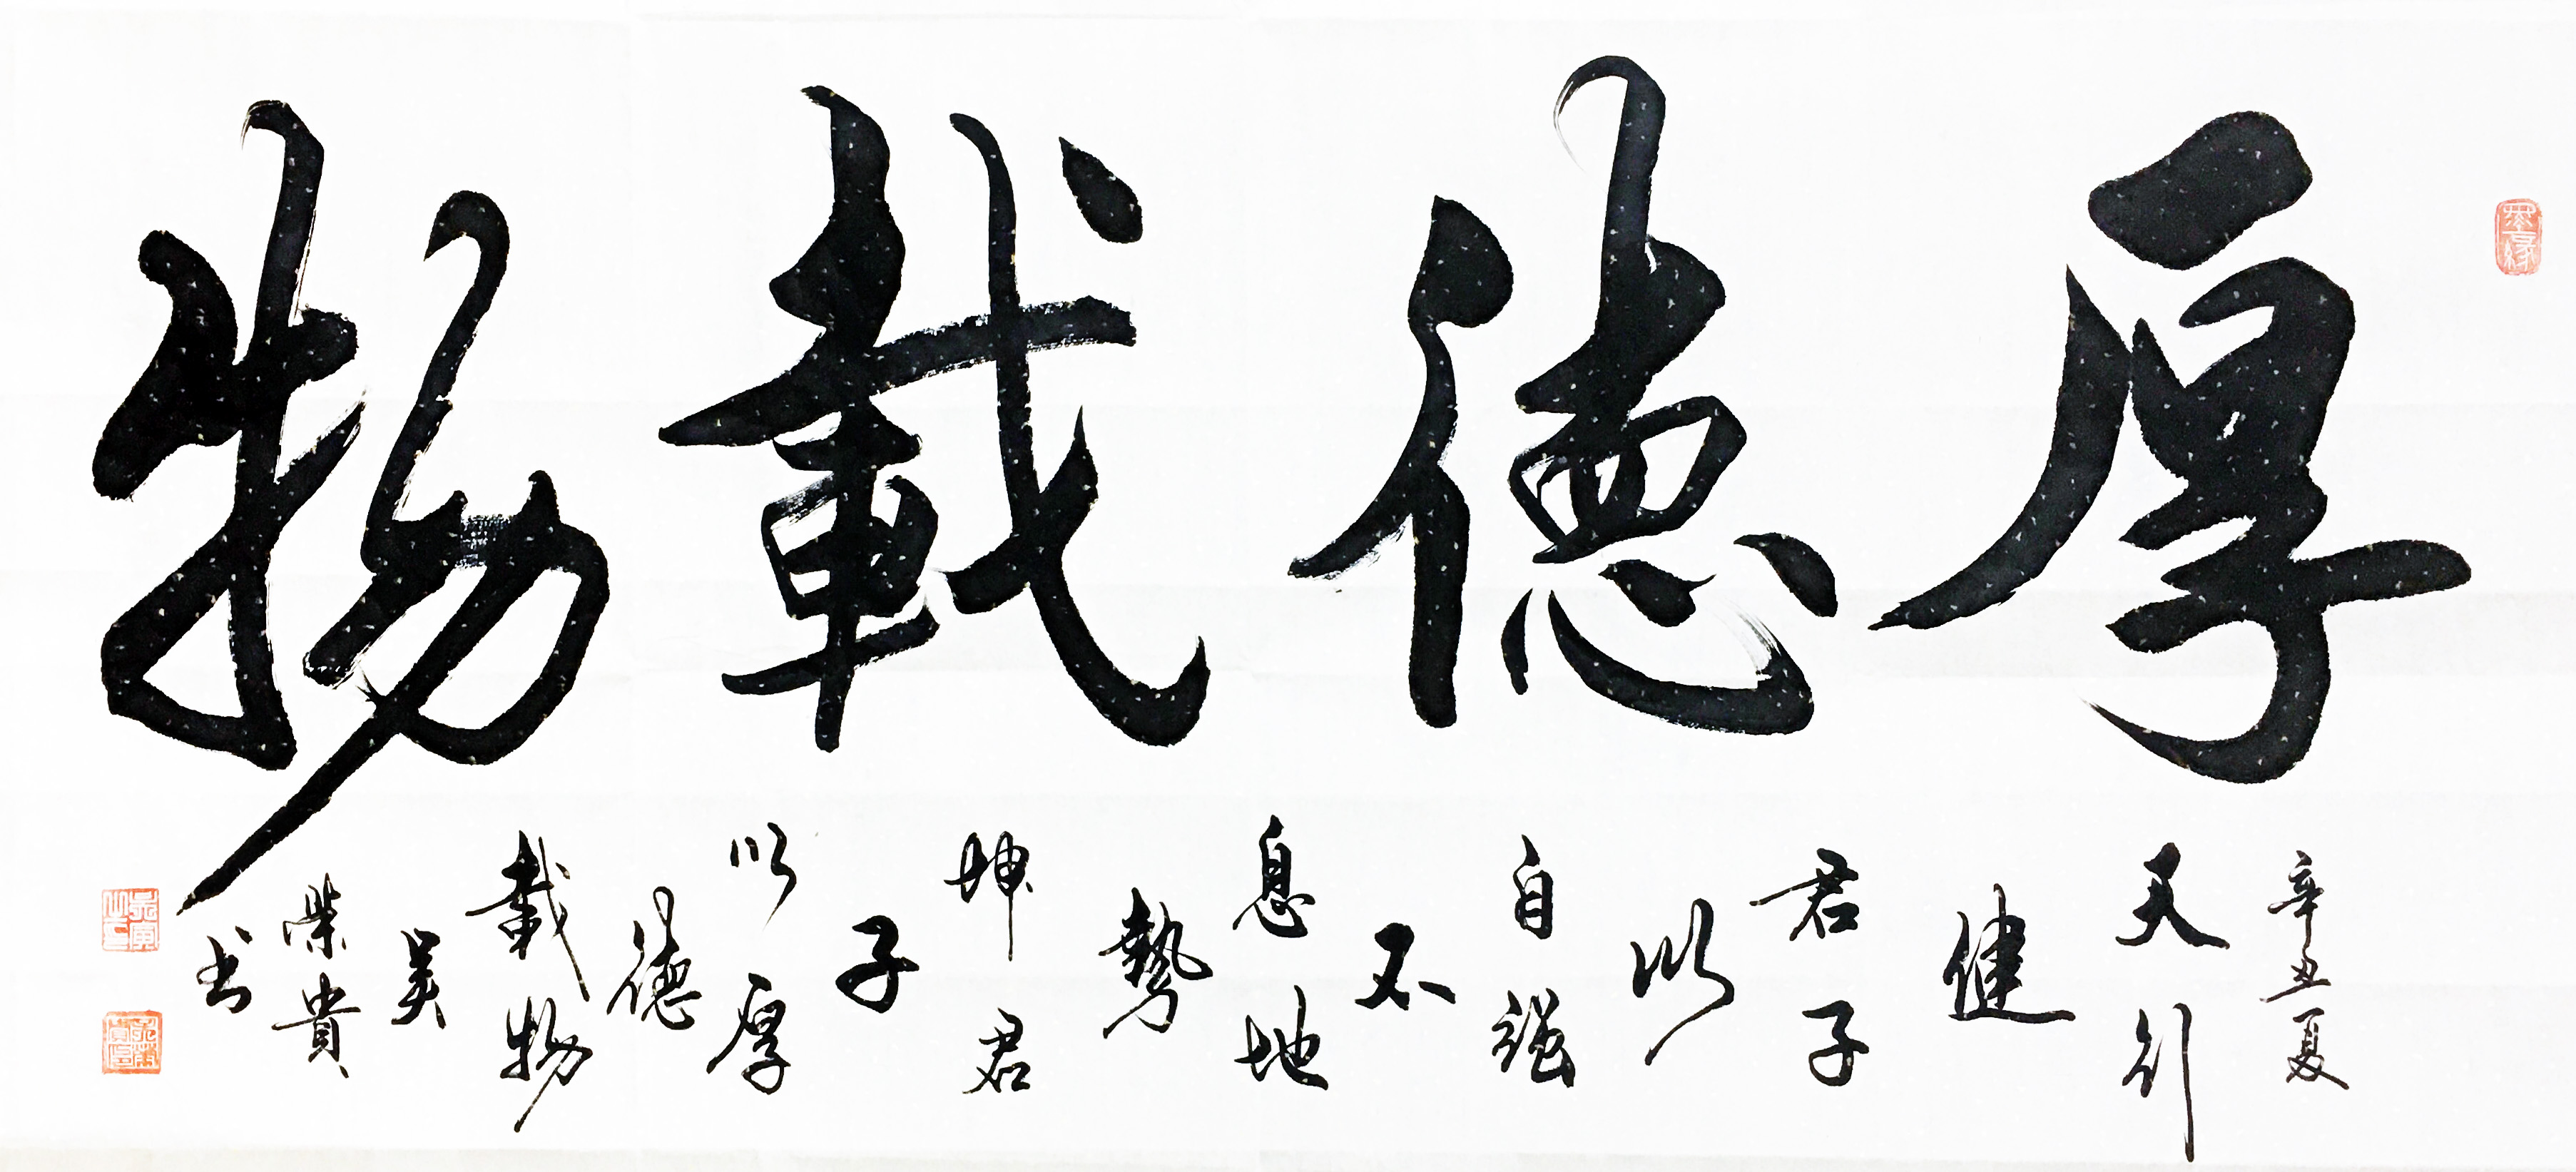 厚德載物
辛丑夏
天行
健
君子
以
自强
不
息地
勢
坤君
子
以厚
德
載物
吴
榮貴
书